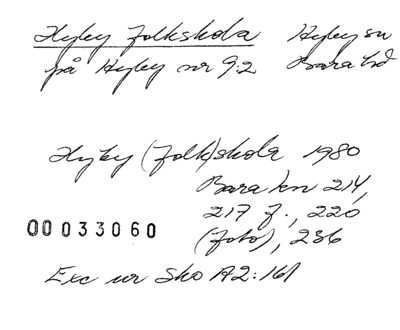 Hyby folkskola Hyby sn
på Hyby nr 9:2 Bara hd
Hyby (folk)skola 1980
Bara kn 214,
217 f., 220
(foto), 236
00033060
Exc ur Sko A2:161